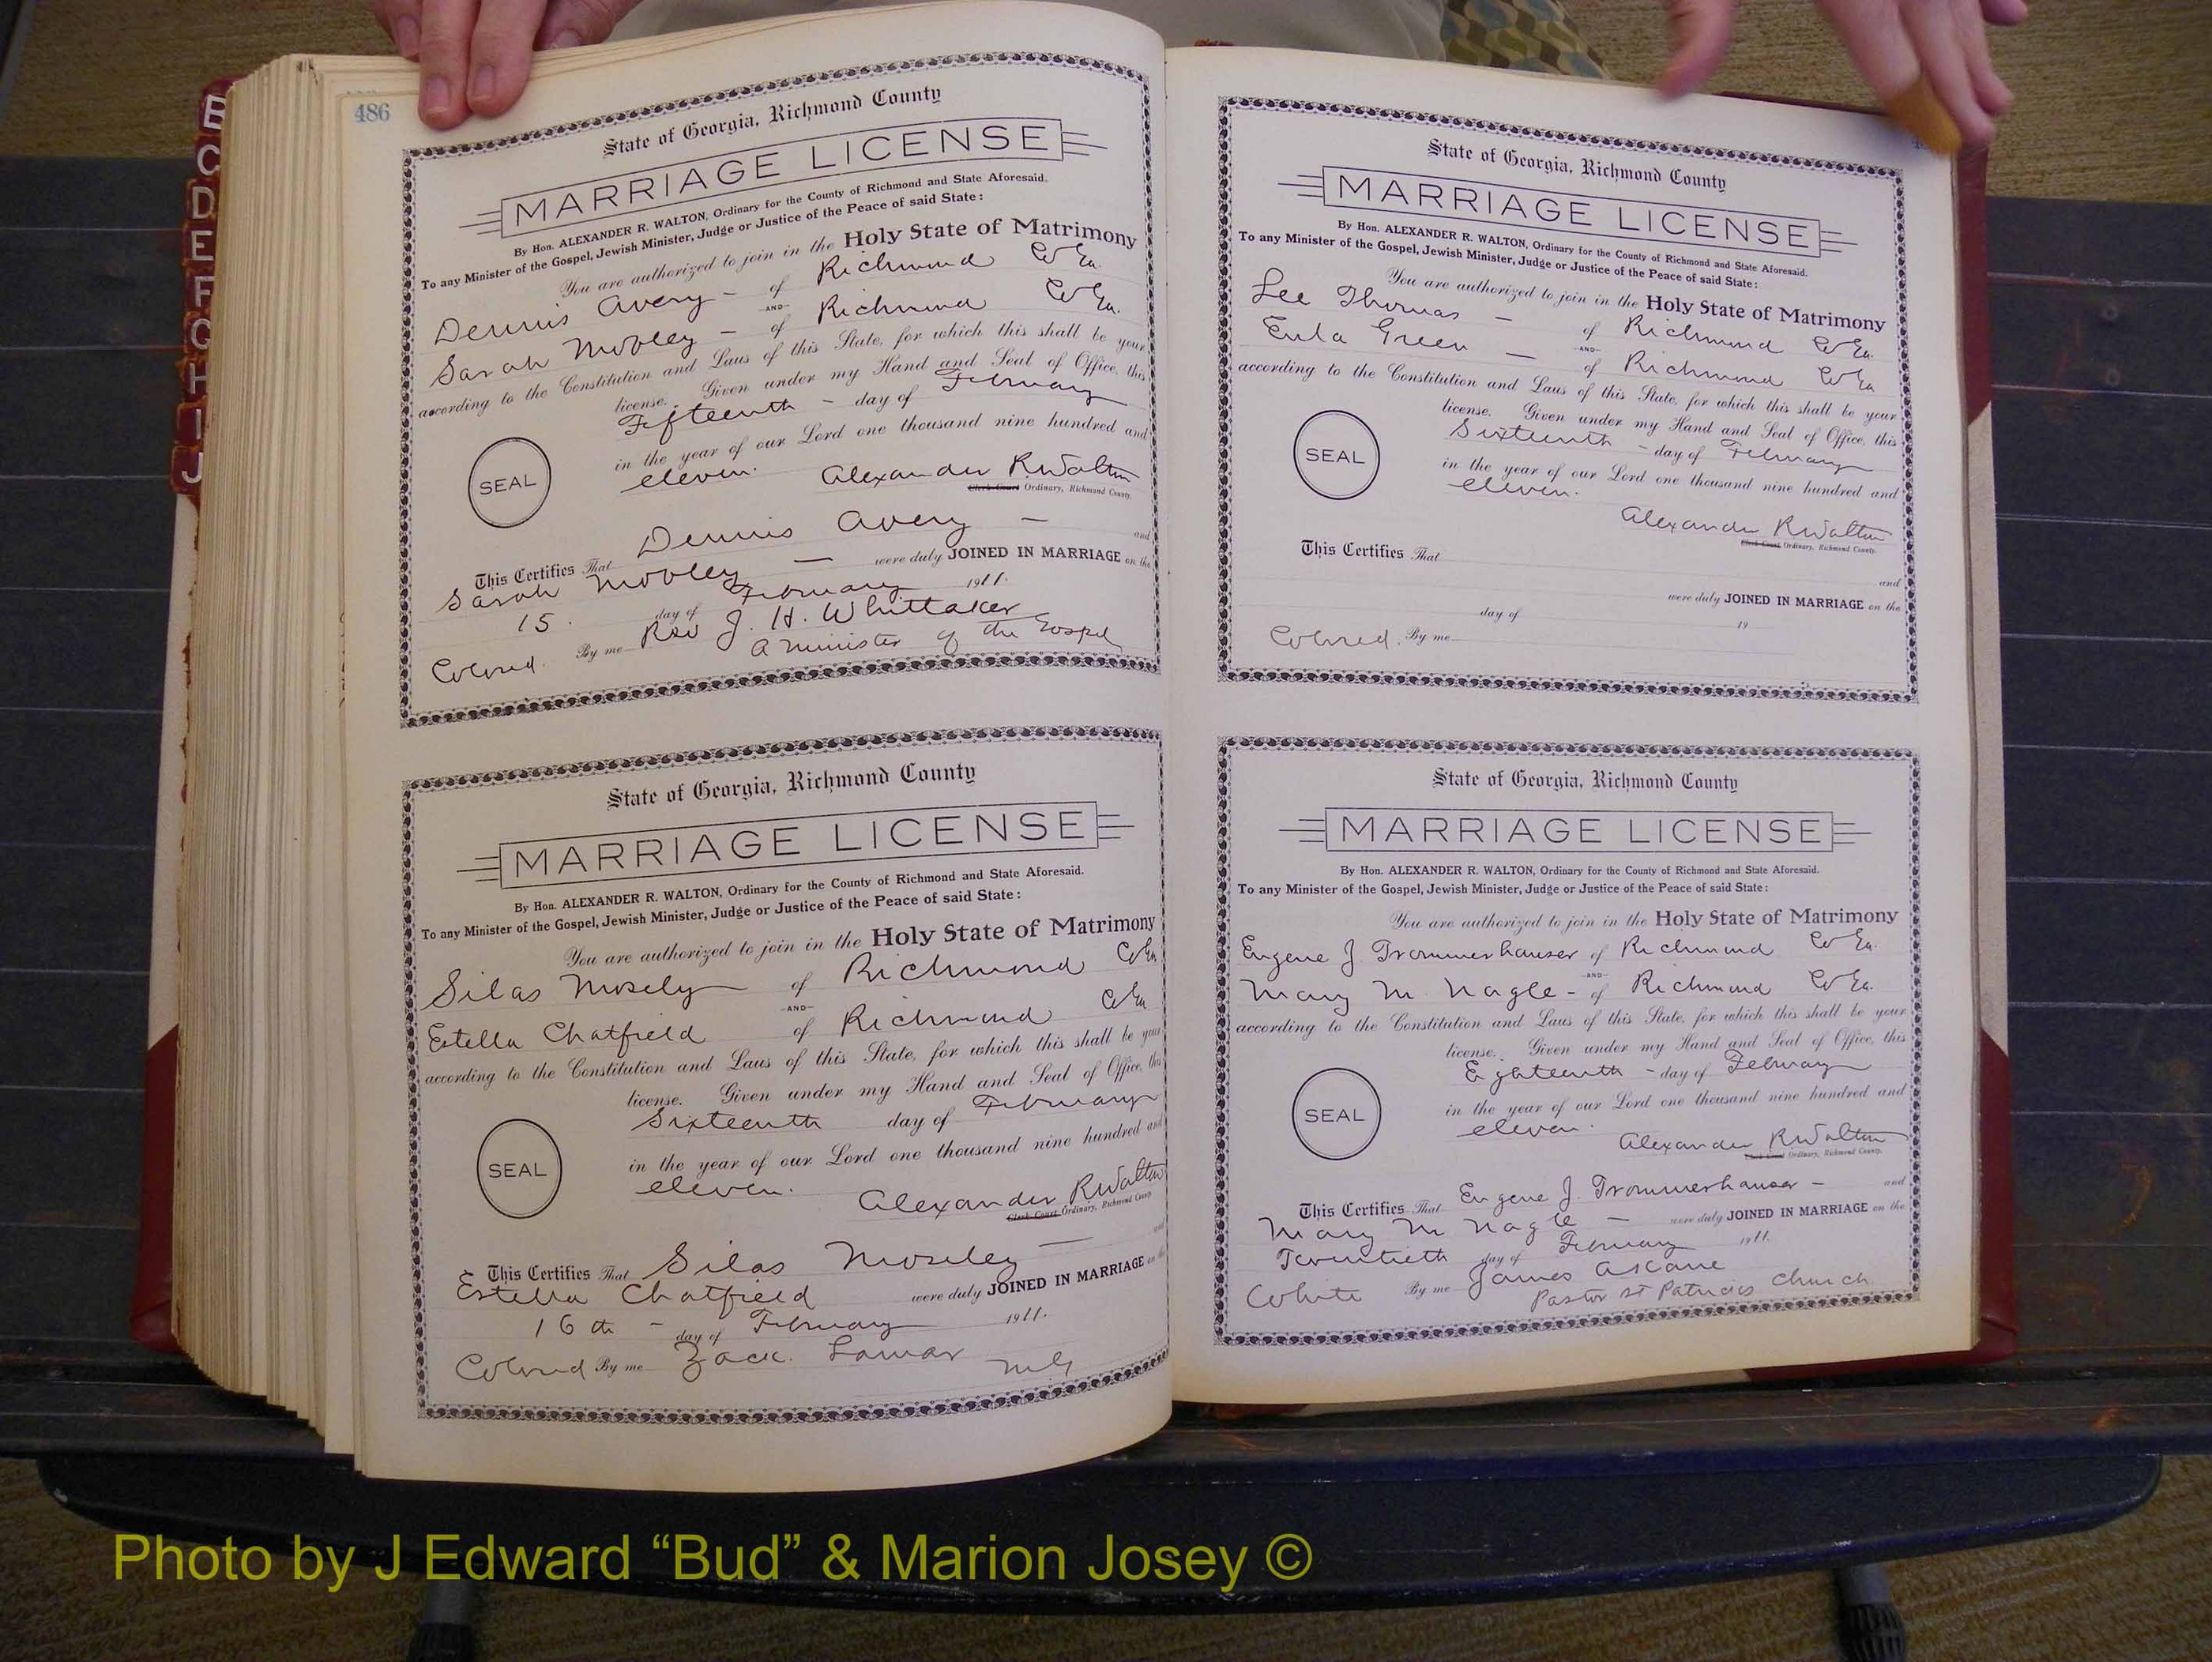 B
C
D
E
F
G
H
I
J
486
State of Georgia, Richmond County
MARRIAGE LICENSE
By Hon. ALEXANDER R. WALTON, Ordinary for the County of Richmond and State Aforesaid.
To any Minister of the Gospel, Jewish Minister, Judge or Justice of the Peace of said State:
You are authorized to join in the Holy State of Matrimony
Dennis Avery - of Richmond Co Ga.
-AND-
Sarah Mobley - of Richmond Co Ga.
according to the Constitution and Laws of this State, for which this shall be your
license. Given under my Hand and Seal of Office, this
Fifteenth - day of February
in the year of our Lord one thousand nine hundred and
SEAL
eleven. Alexander R Walton
Clerk Court Ordinary, Richmond County.
This Certifies That Dennis Avery - and
Sarah Mobley - were duly JOINED IN MARRIAGE on the
15. day of February 1911.
Colored. By me Rev J. H. Whittaker
A minister of the Gospel
State of Georgia, Richmond County
MARRIAGE LICENSE
By Hon. ALEXANDER R. WALTON, Ordinary for the County of Richmond and State Aforesaid.
To any Minister of the Gospel, Jewish Minister, Judge or Justice of the Peace of said State:
You are authorized to join in the Holy State of Matrimony
Silas Mosely of Richmond Co Ga
-AND-
Estella Chatfield of Richmond Co Ga
according to the Constitution and Laws of this State, for which this shall be your
license. Given under my Hand and Seal of Office, this
Sixteenth day of February
in the year of our Lord one thousand nine hundred and
SEAL
eleven. Alexander R Walton
Clerk Court Ordinary, Richmond County
This Certifies That Silas Moseley - and
Estella Chatfield were duly JOINED IN MARRIAGE on the
16th - day of February 1911.
Colored By me Zack. Lamar M G
State of Georgia, Richmond County
MARRIAGE LICENSE
By Hon. ALEXANDER R. WALTON, Ordinary for the County of Richmond and State Aforesaid.
To any Minister of the Gospel, Jewish Minister, Judge or Justice of the Peace of said State:
You are authorized to join in the Holy State of Matrimony
Lee Thomas - of Richmond Co Ga.
-AND-
Eula Green - of Richmond Co Ga
according to the Constitution and Laws of this State, for which this shall be your
license. Given under my Hand and Seal of Office, this
Sixteenth - day of February
in the year of our Lord one thousand nine hundred and
SEAL
eleven.
Alexander R Walton
Clerk Court Ordinary, Richmond County.
This Certifies That
and
were duly JOINED IN MARRIAGE on the
day of 19
Colored. By me
State of Georgia, Richmond County
MARRIAGE LICENSE
By Hon. ALEXANDER R. WALTON, Ordinary for the County of Richmond and State Aforesaid.
To any Minister of the Gospel, Jewish Minister, Judge or Justice of the Peace of said State:
You are authorized to join in the Holy State of Matrimony
Eugene J. Trommerhauser of Richmond Co Ga.
-AND-
Mary M. Nagle - of Richmond Co Ga.
according to the Constitution and Laws of this State, for which this shall be your
license. Given under my Hand and Seal of Office, this
Eighteenth - day of February
in the year of our Lord one thousand nine hundred and
SEAL
eleven.
Alexander R Walton
Clerk Court Ordinary, Richmond County.
This Certifies That Eugene J. Trommerhauser - and
Mary M Nagle - were duly JOINED IN MARRIAGE on the
Twentieth day of February 1911.
White By me James A Kane
Pastor St Patricks Church
Photo by J Edward “Bud” & Marion Josey ©